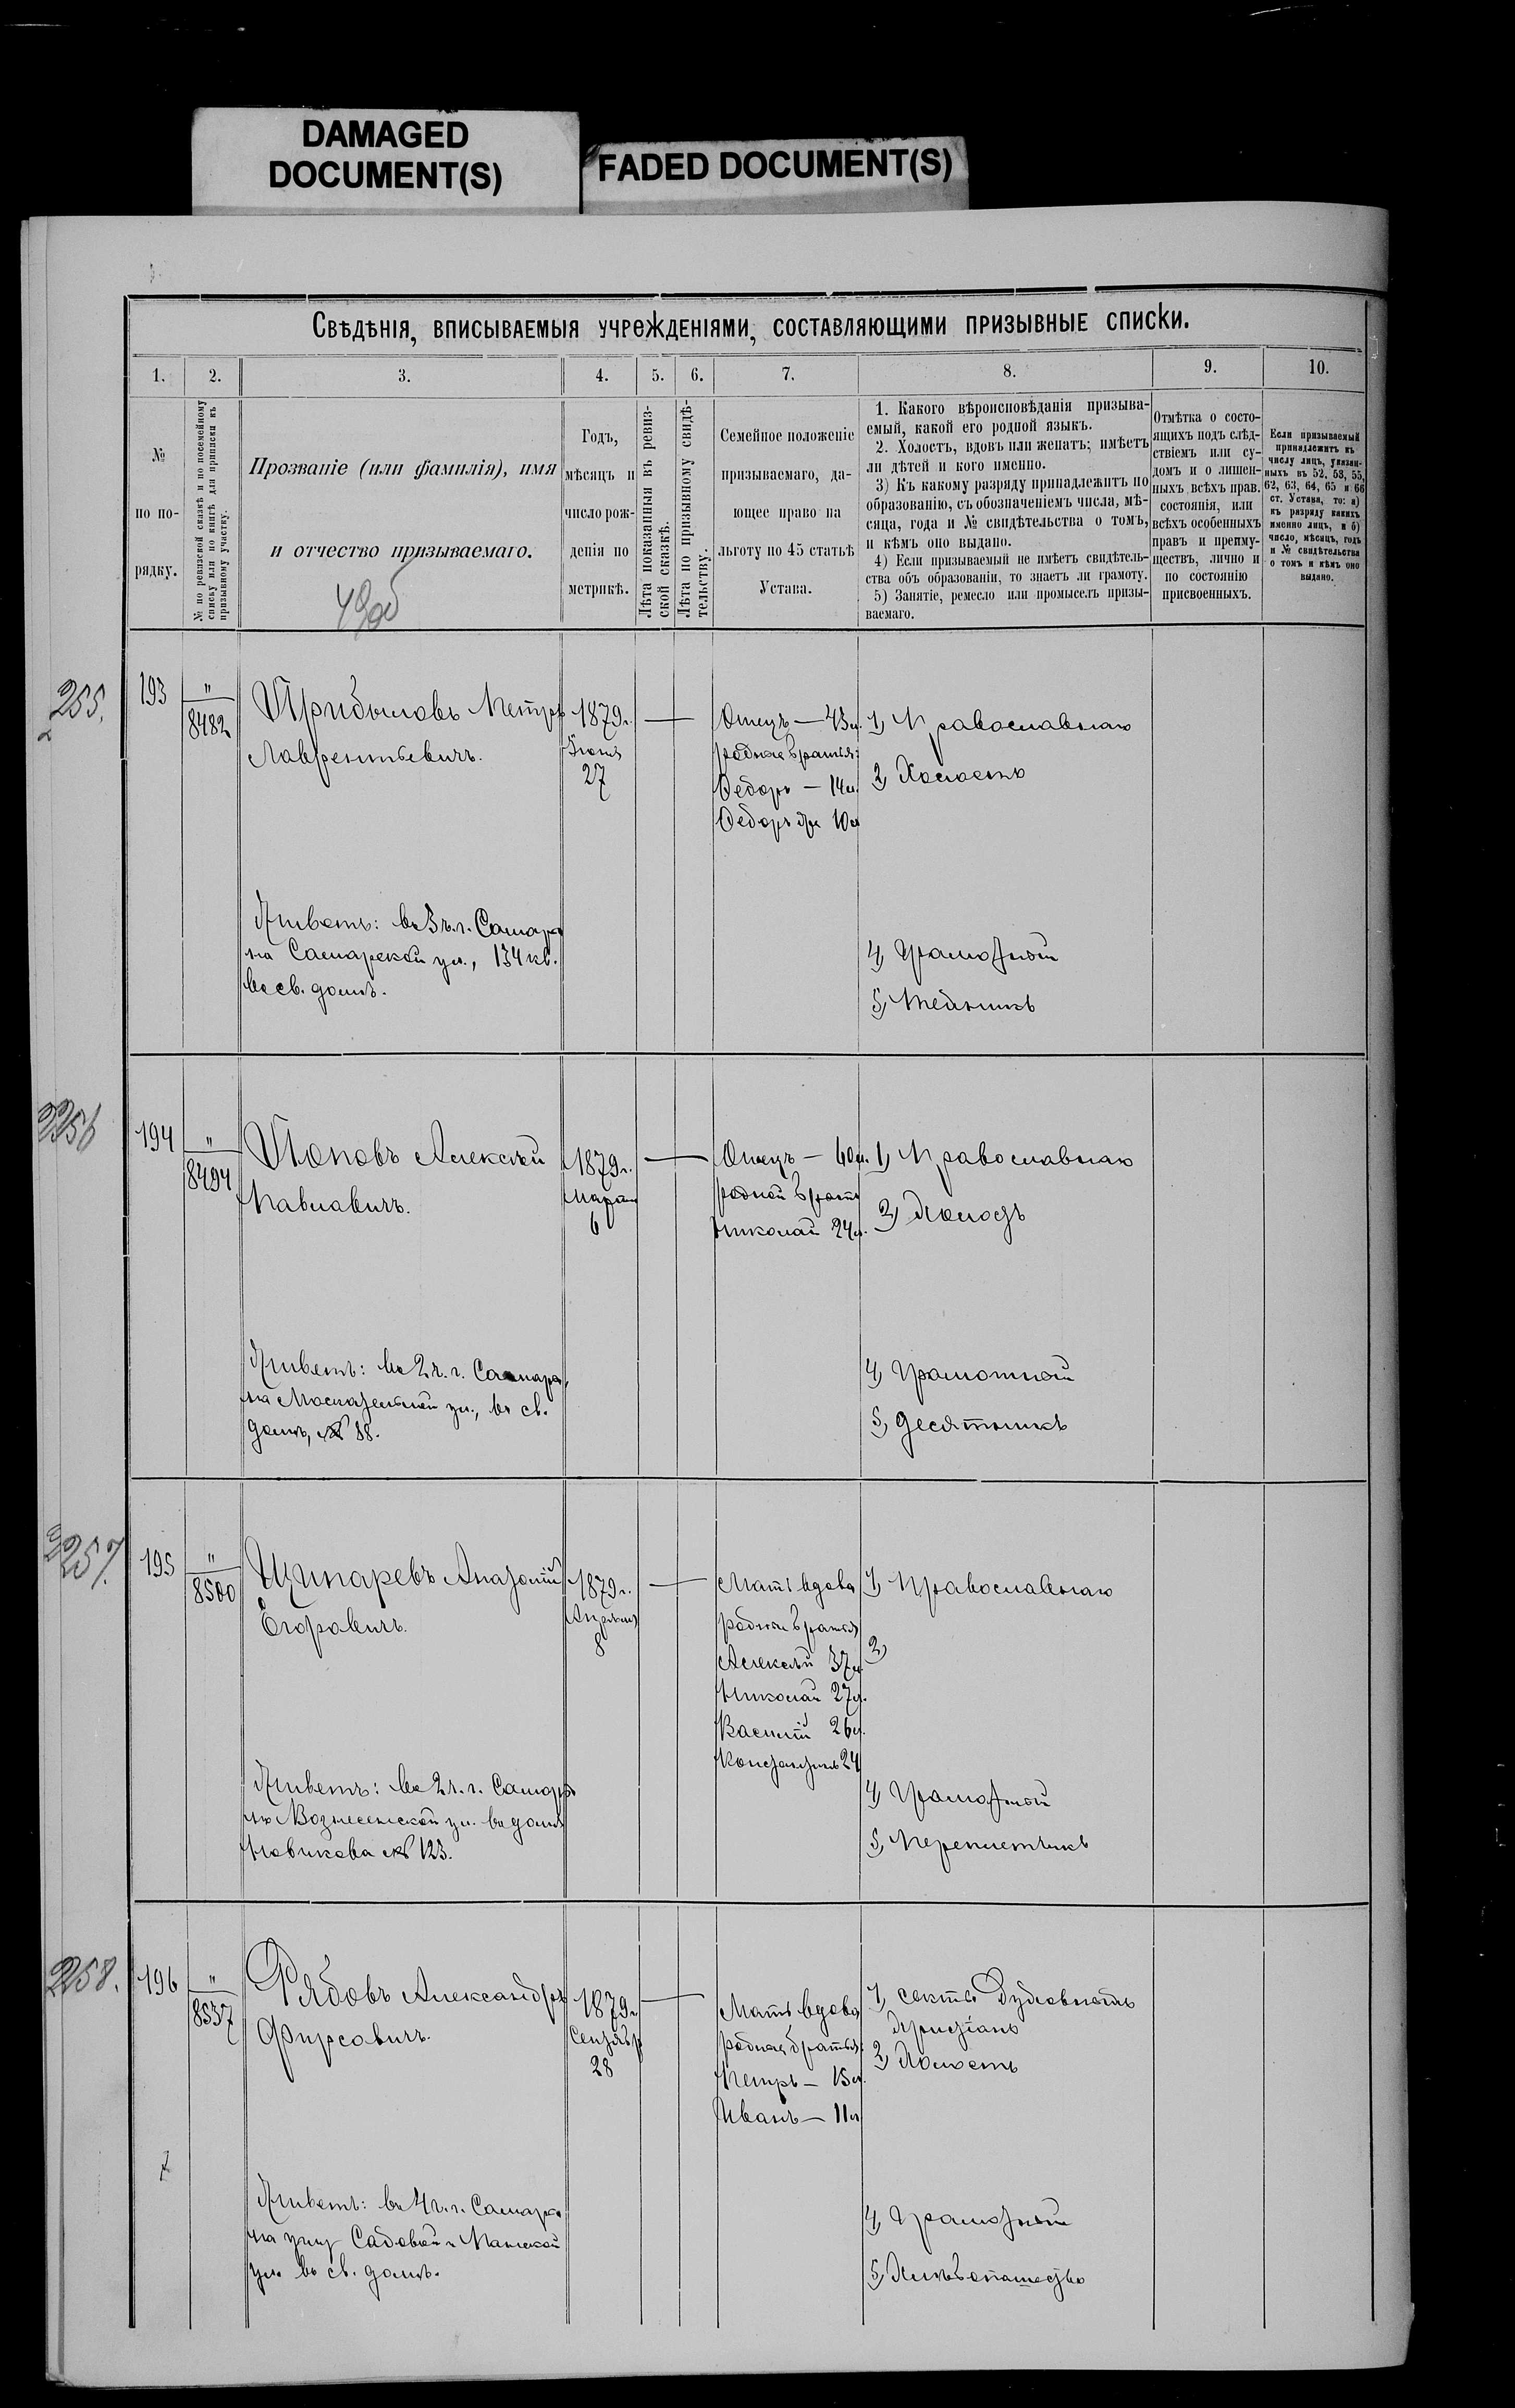 DAMAGED
DOCUMENT(S)
FADED DOCUMENT(S)
Свѣдѣнія, вписываемыя учрежденіями, составляющими призывные списки.
1.
2.
3.
4.
5.
6.
7.
8.
9.
10.
№
по по-
рядку.
№ по ревизской сказкѣ и по посемейному
списку или по книгѣ для приписки къ
призывному участку.
Прозваніе (или фамилія), имя
и отчество призываемаго.
Годъ,
мѣсяцъ и
число рож-
денія по
метрикѣ.
Лѣта показанныя въ ревиз-
ской сказкѣ.
Лѣта по призывному свидѣ-
тельству.
Семейное положеніе
призываемаго, да-
ющее право на
льготу по 45 статьѣ
Устава.
1. Какого вѣроисповѣданія призыва-
емый, какой его родной языкъ.
2. Холостъ, вдовъ или женатъ; имѣетъ
ли дѣтей и кого именно.
3) Къ какому разряду принадлежитъ по
образованію, съ обозначеніемъ числа, мѣ-
сяца, года и № свидѣтельства о томъ,
и кѣмъ оно выдано.
4) Если призываемый не имѣетъ свидѣтель-
ства объ образованіи, то знаетъ ли грамоту.
5) Занятіе, ремесло или промыселъ призы-
ваемаго.
Отмѣтка о состо-
ящихъ подъ слѣд-
ствіемъ или су-
домъ и о лишен-
ныхъ всѣхъ прав.
состоянія, или
всѣхъ особенныхъ
правъ и преиму-
ществъ, лично и
по состоянію
присвоенныхъ.
Если призываемый
принадлежитъ къ
числу лицъ, указан-
ныхъ въ 52, 53, 55,
62, 63, 64, 65 и 66
ст. Устава, то: а)
къ разряду какихъ
именно лицъ, и б)
число, мѣсяцъ, годъ
и № свидѣтельства
о томъ и кѣмъ оно
выдано.
255.
193
"
8482
Прибыловъ Петръ
Лаврентьевичъ.
1879 г.
Іюня
27
Отецъ — 43 л.
родные братья:
Ѳедоръ — 14 л.
Ѳедоръ 10 л
1) Православнаго
2) Холостъ
Живетъ: въ 3 ч. г. Самары
на Самарской ул., 134 кв.
въ св. домѣ.
4) Грамотный
5)
256
194
"
8494
Поповъ Алексѣй
Павловичъ.
1879 г.
Марта
6
Отецъ — 60 л.
родной братъ
Николай 24 л.
1) Православнаго
2) Холостъ
Живетъ: во 2 ч. г. Самары,
на Москательной ул., въ св.
домѣ, № 88.
4) Грамотный
5) Десятникъ
257.
195
"
8500
Щипаревъ Анатолій
Егоровичъ.
1879 г.
Апрѣля
8
Мать вдова
родные братья
Алексѣй 37 л.
Николай 27 л.
Василій 26 л.
Константинъ 24
1) Православнаго
2)
Живетъ: во 2 ч. г. Самары
на Вознесенской ул. въ домѣ
Новикова № 123.
4) Грамотный
5) Переплетчикъ
258.
196
"
8537
Рябовъ Александръ
Фирсовичъ.
1879 г.
Сентябр
28
Мать вдова
родные братья:
Петръ — 15 л.
Иванъ — 11 л
1) секты Духовныхъ
Христіанъ
2) Холостъ
Живетъ: въ 4 ч. г. Самары
на углу Садовой и Панской
ул. въ св. домѣ.
4) Грамотный
5) Хлѣбопашество